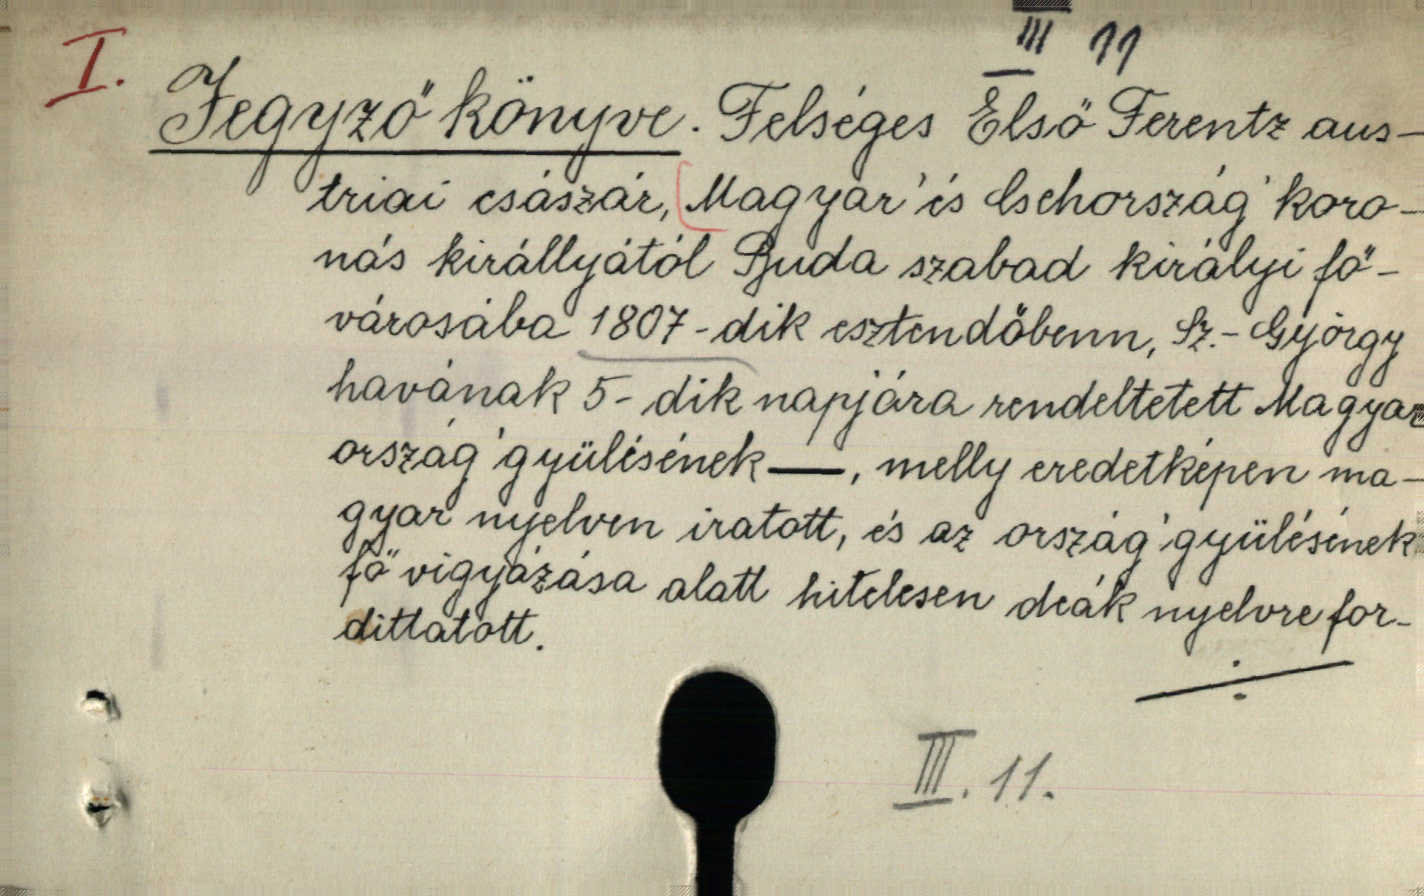 III 11
I.
Jegyző könyve. Felséges Első Ferentz aus-
triai császár, Magyar' és Csehország' koro-
nás királlyától Buda szabad királyi fő-
városába 1807-dik esztendőbenn, Sz.-György
havának 5-dik napjára rendeltetett Magyar
ország'gyülésének—, melly eredetképen ma-
gyar nyelven iratott, és az ország'gyülésének
fő vigyázása alatt hitelesen deák nyelvre for-
dittatott.
III. 11.